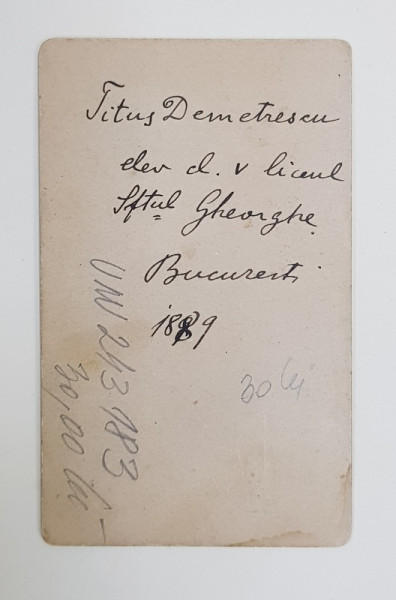 Titus Demetrescu
elev cl. V liceul
Sftul Gheorghe
Bucuresti
1889
30 lei
VN 243183
30,00 lei